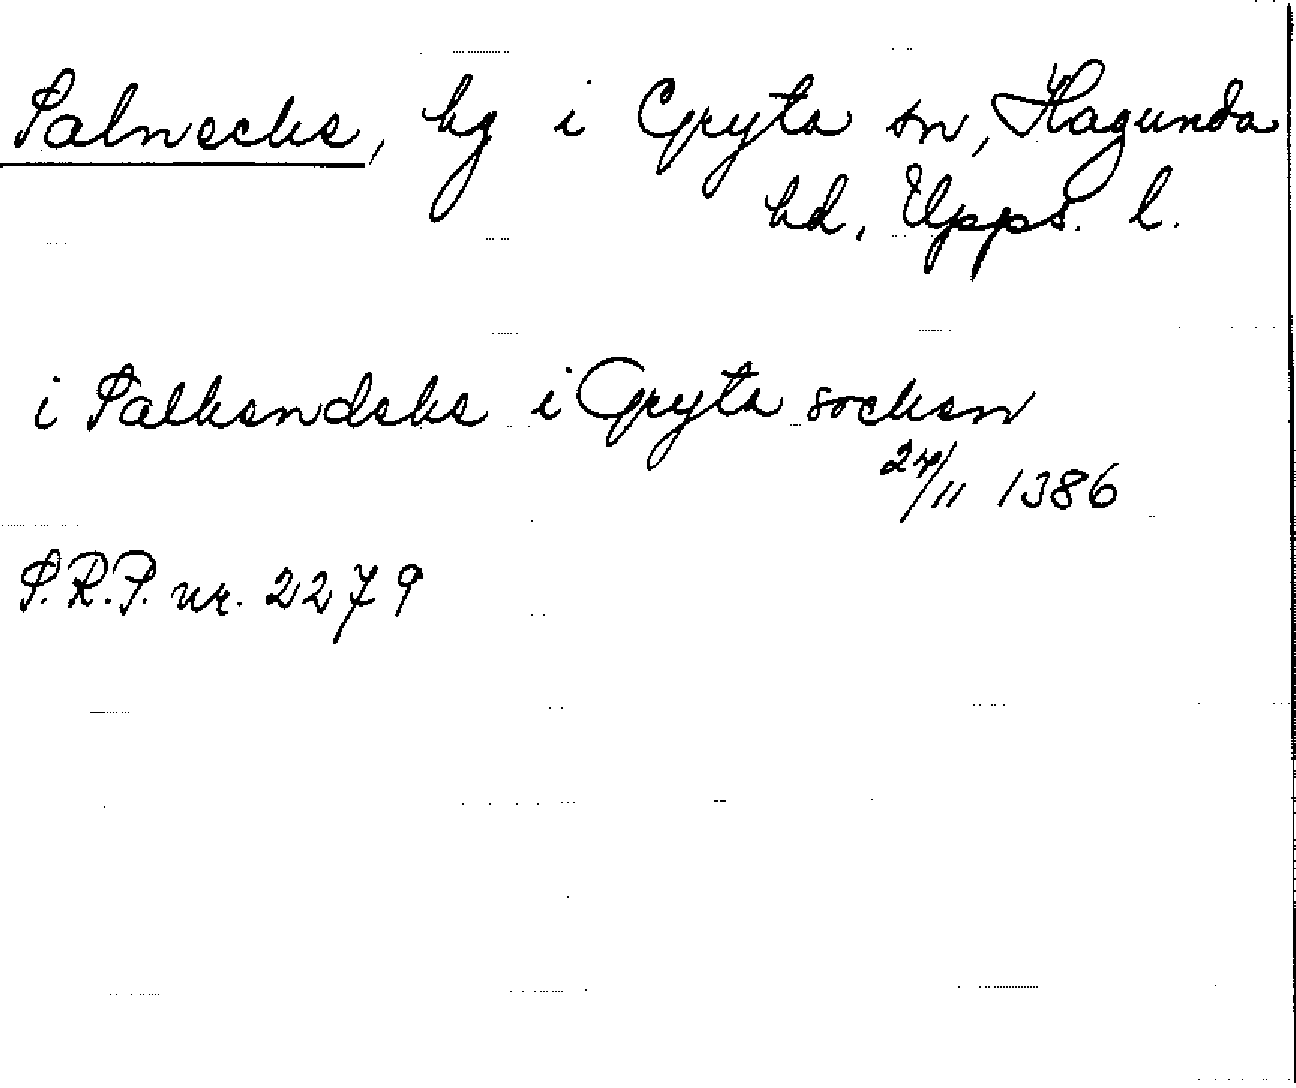 Salnecke, hg i Gryta sn, Hagunda
hd, Upps. l.
i Salkendeke i Gryta socken
24/11 1386
S.R.P. nr. 2279